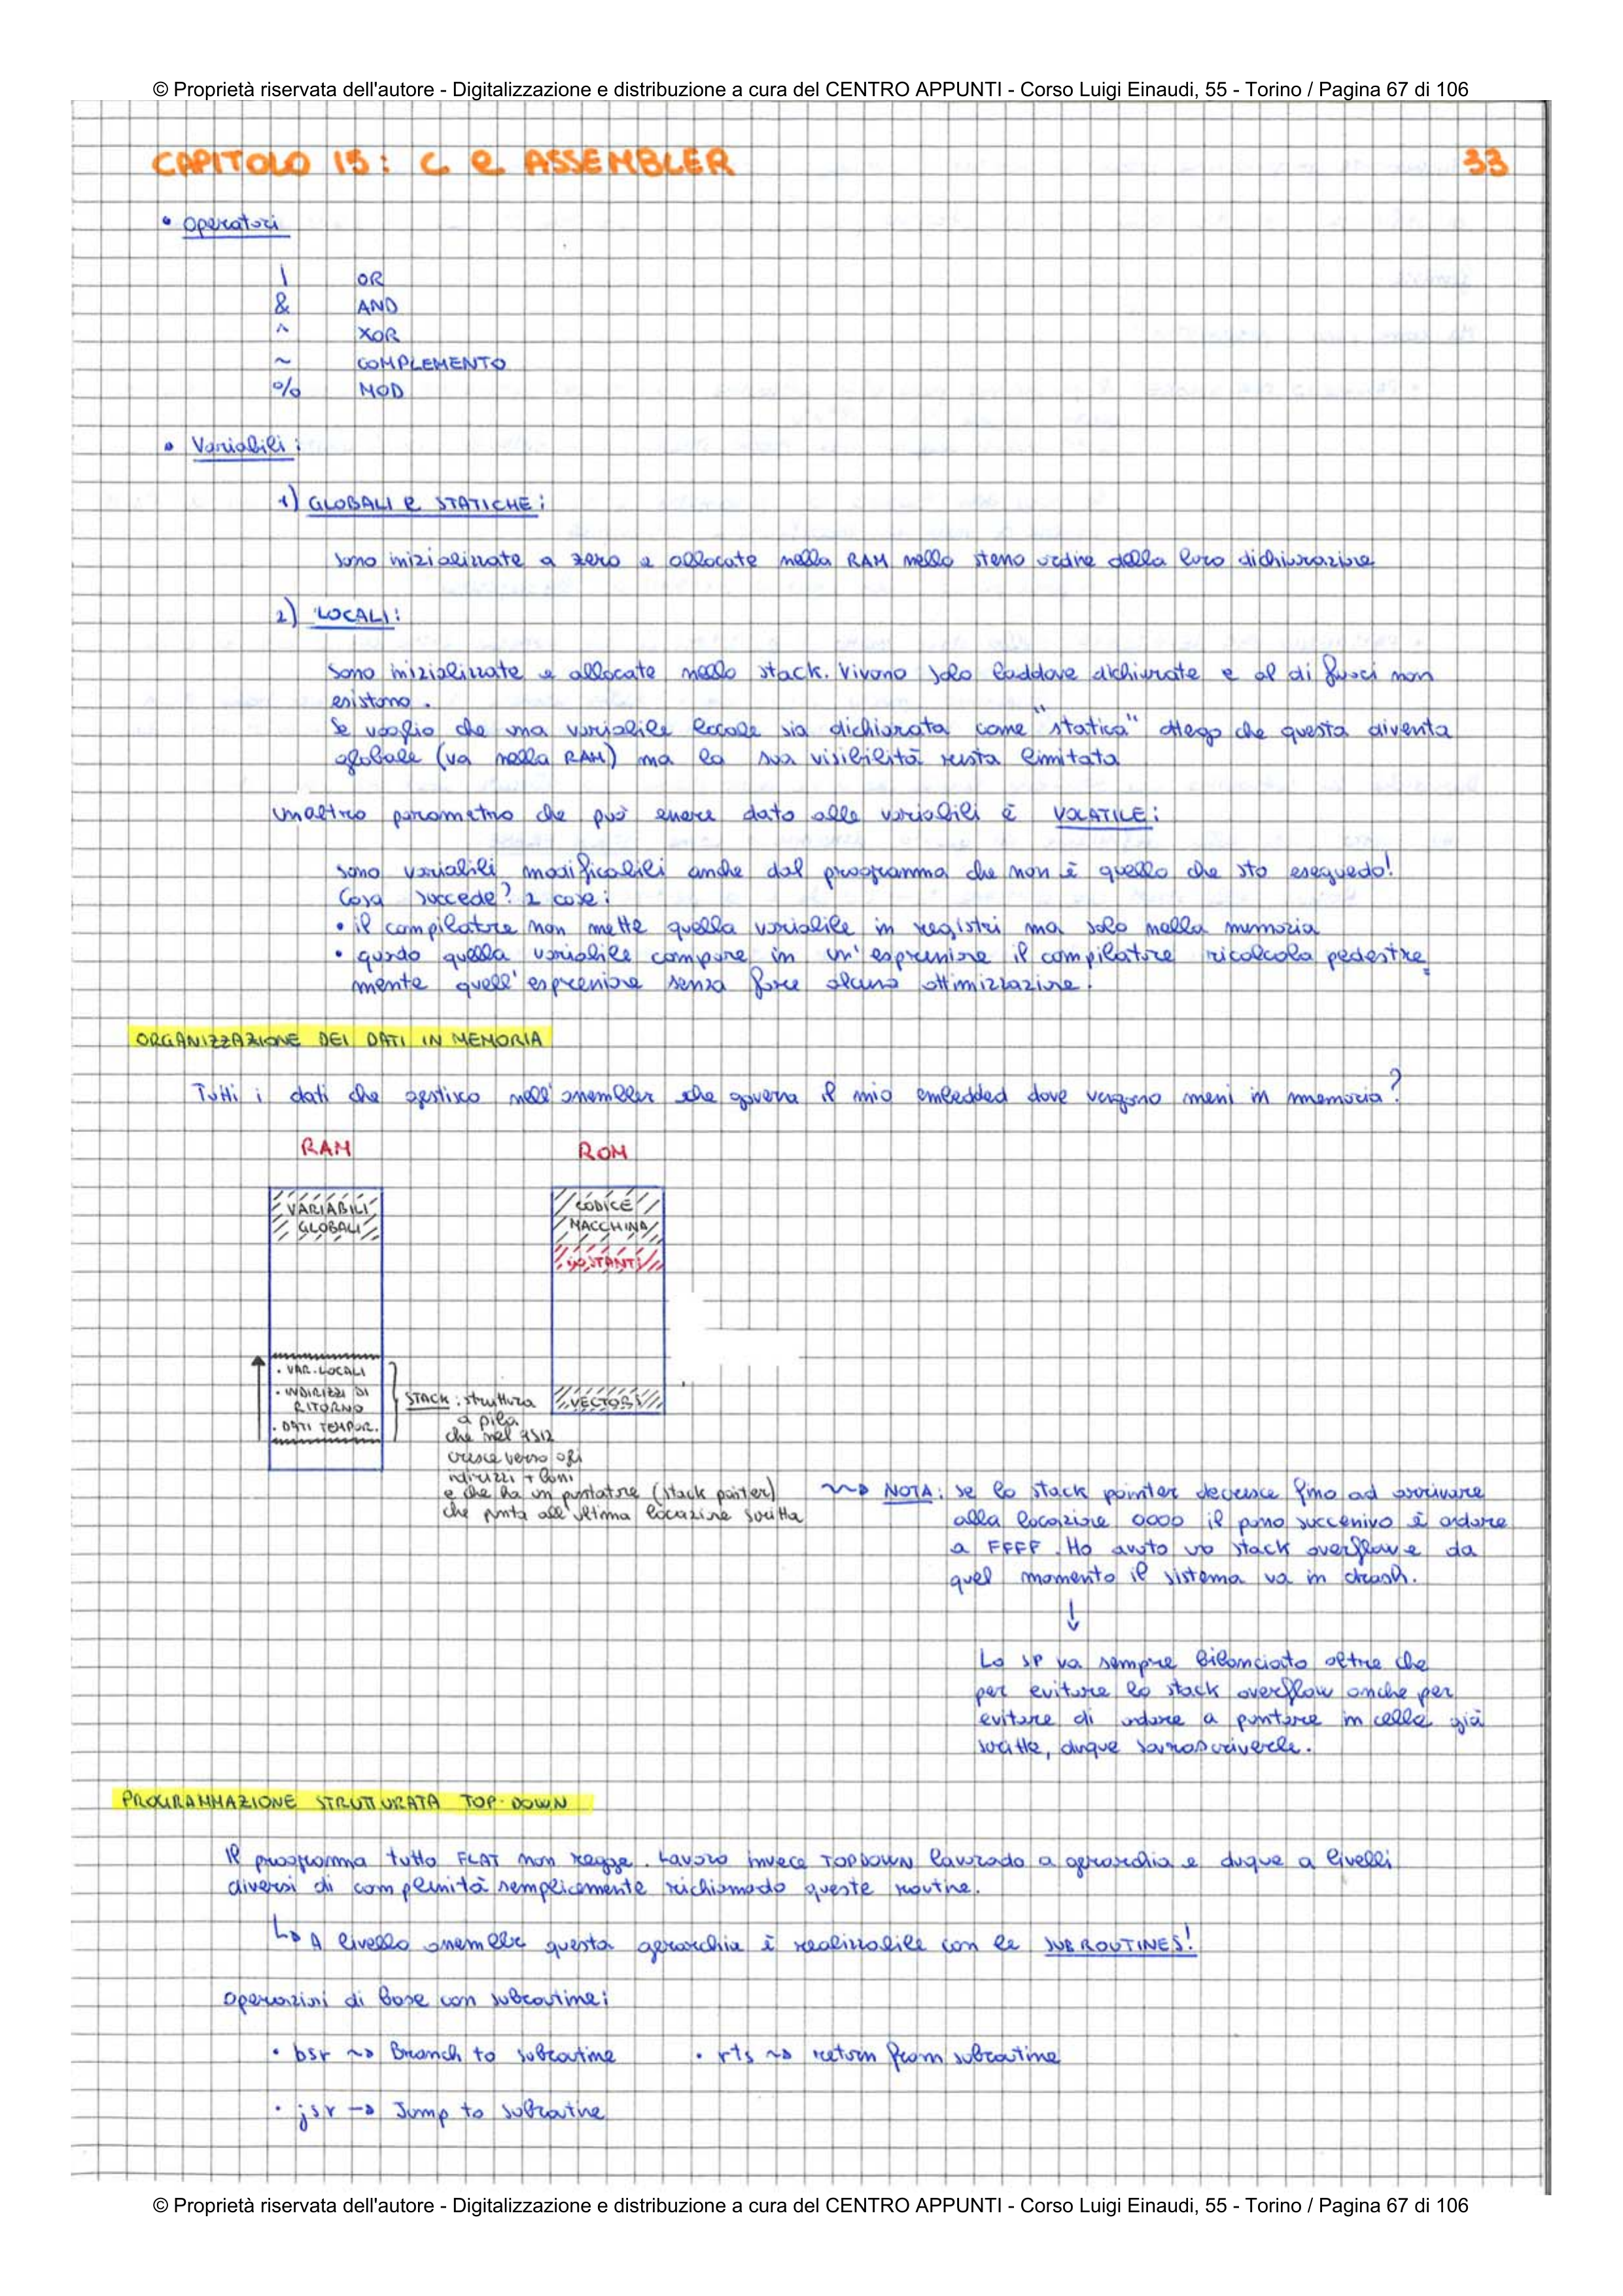 © Proprietà riservata dell'autore - Digitalizzazione e distribuzione a cura del CENTRO APPUNTI - Corso Luigi Einaudi, 55 - Torino / Pagina 67 di 106
CAPITOLO 15: C e ASSEMBLER
33
• Operatori
| OR
& AND
^ XOR
~ COMPLEMENTO
% MOD
• Variabili:
1) GLOBALI e STATICHE:
sono inizializzate a zero e allocate nella RAM nello stesso ordine della loro dichiarazione
2) LOCALI:
sono inizializzate e allocate nello stack. Vivono solo laddove dichiarate e al di fuori non
esistono.
Se voglio che una variabile locale sia dichiarata come "statica" ottego che questa diventa
globale (va nella RAM) ma la sua visibilità resta limitata
Un altro parametro che può essere dato alle variabili è VOLATILE:
sono variabili modificabili anche dal programma che non è quello che sto eseguedo!
Cosa succede? 2 cose:
• il compilatore non mette quella variabile in registri ma solo nella memoria
• quado quella variabile compare in un'espressione il compilatore ricalcola pedestre
mente quell'espressione senza fare alcuna ottimizzazione.
ORGANIZZAZIONE DEI DATI IN MEMORIA
Tutti i dati che gestisco nell'assembler che governa il mio embedded dove vengono messi in memoria?
RAM
ROM
VARIABILI
GLOBALI
CODICE
MACCHINA
COSTANTI
• VAR. LOCALI
• INDIRIZZI DI
RITORNO
• DATI TEMPOR.
VECTORS
STACK: struttura
a pila
che nel 9S12
cresce verso gli
indirizzi + bassi
e che ha un puntatore (stack pointer)
che punta all'ultima locazione scritta
NOTA: se lo stack pointer decresce fino ad arrivare
alla locazione 0000 il passo successivo è andare
a FFFF. Ho avuto uo stack overflow e da
quel momento il sistema va in crash.
↓
Lo SP va sempre bilanciato oltre che
per evitare lo stack overflow anche per
evitare di andare a puntare in celle già
scritte, duque sovrascriverle.
PROGRAMMAZIONE STRUTTURATA TOP-DOWN
Il programma tutto FLAT non regge. Lavoro invece TOPDOWN lavorado a gerarchia e duque a livelli
diversi di complessità semplicemente richiamado queste routine.
↳ A livello assembler questa gerarchia è realizzabile con le SUBROUTINES!
Operazioni di base con subroutine:
• bsr ⇝ Branch to subroutine
• rts ⇝ return from subroutine
• jsr → Jump to subroutine
© Proprietà riservata dell'autore - Digitalizzazione e distribuzione a cura del CENTRO APPUNTI - Corso Luigi Einaudi, 55 - Torino / Pagina 67 di 106